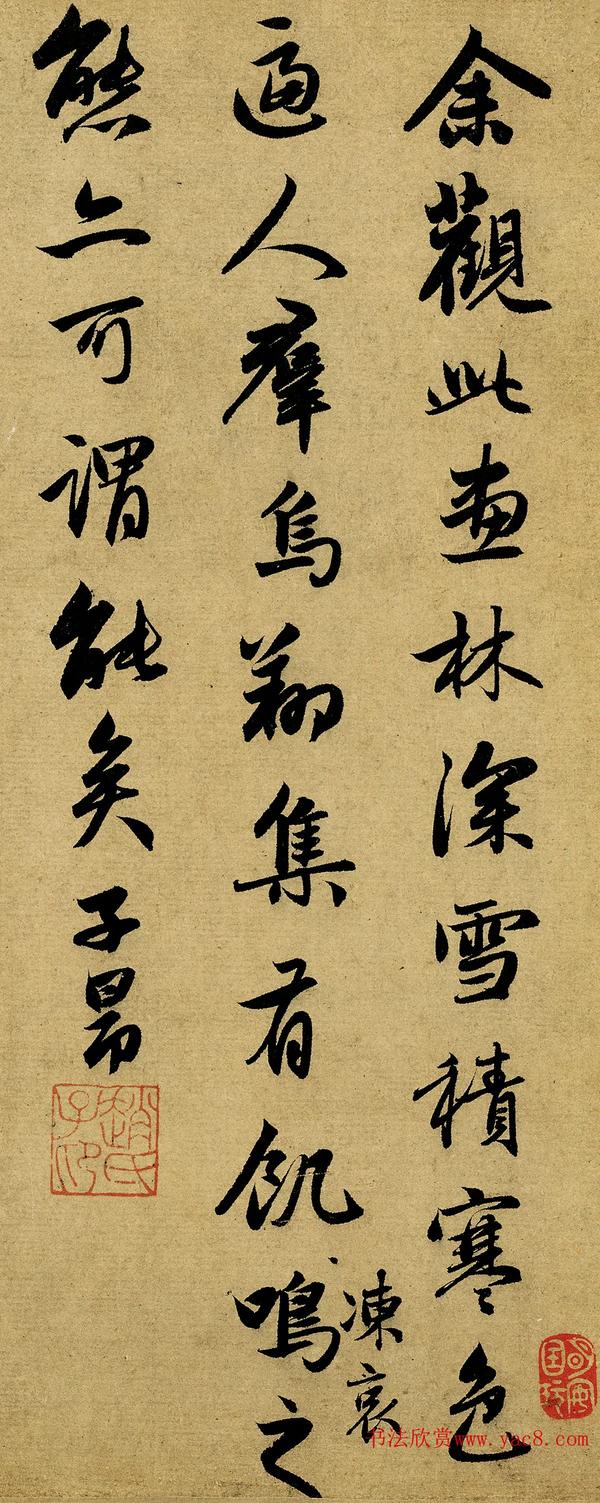 余觀此畫林深雪積寒色
逼人羣烏翔集有飢鳴之
凍哀
態亦可謂能矣子昂
趙氏子昂
书法欣赏www.yac8.com